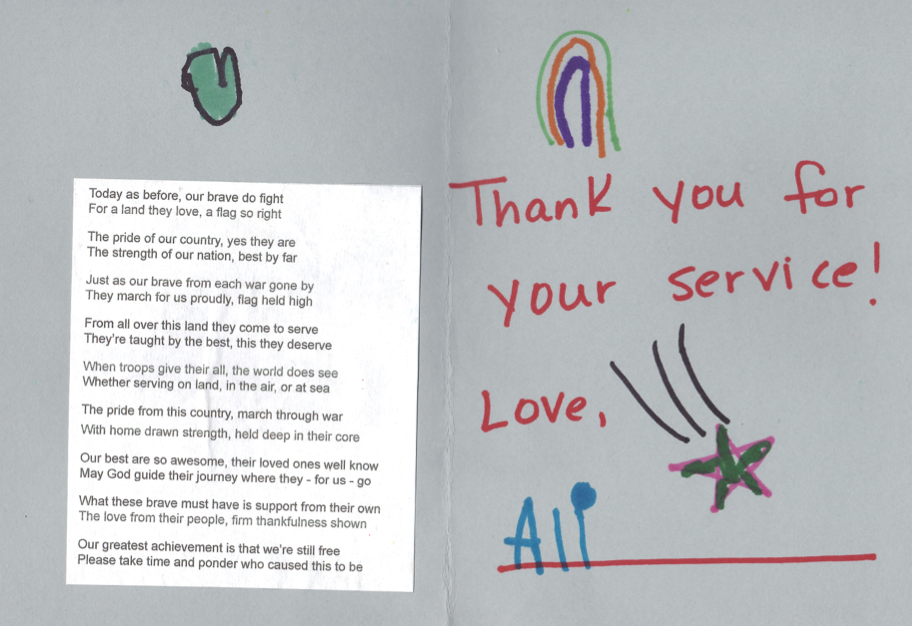 Today as before, our brave do fight
For a land they love, a flag so right
The pride of our country, yes they are
The strength of our nation, best by far
Just as our brave from each war gone by
They march for us proudly, flag held high
From all over this land they come to serve
They're taught by the best, this they deserve
When troops give their all, the world does see
Whether serving on land, in the air, or at sea
The pride from this country, march through war
With home drawn strength, held deep in their core
Our best are so awesome, their loved ones well know
May God guide their journey where they - for us - go
What these brave must have is support from their own
The love from their people, firm thankfulness shown
Our greatest achievement is that we're still free
Please take time and ponder who caused this to be
Thank you for
your service!
Love,
Ali